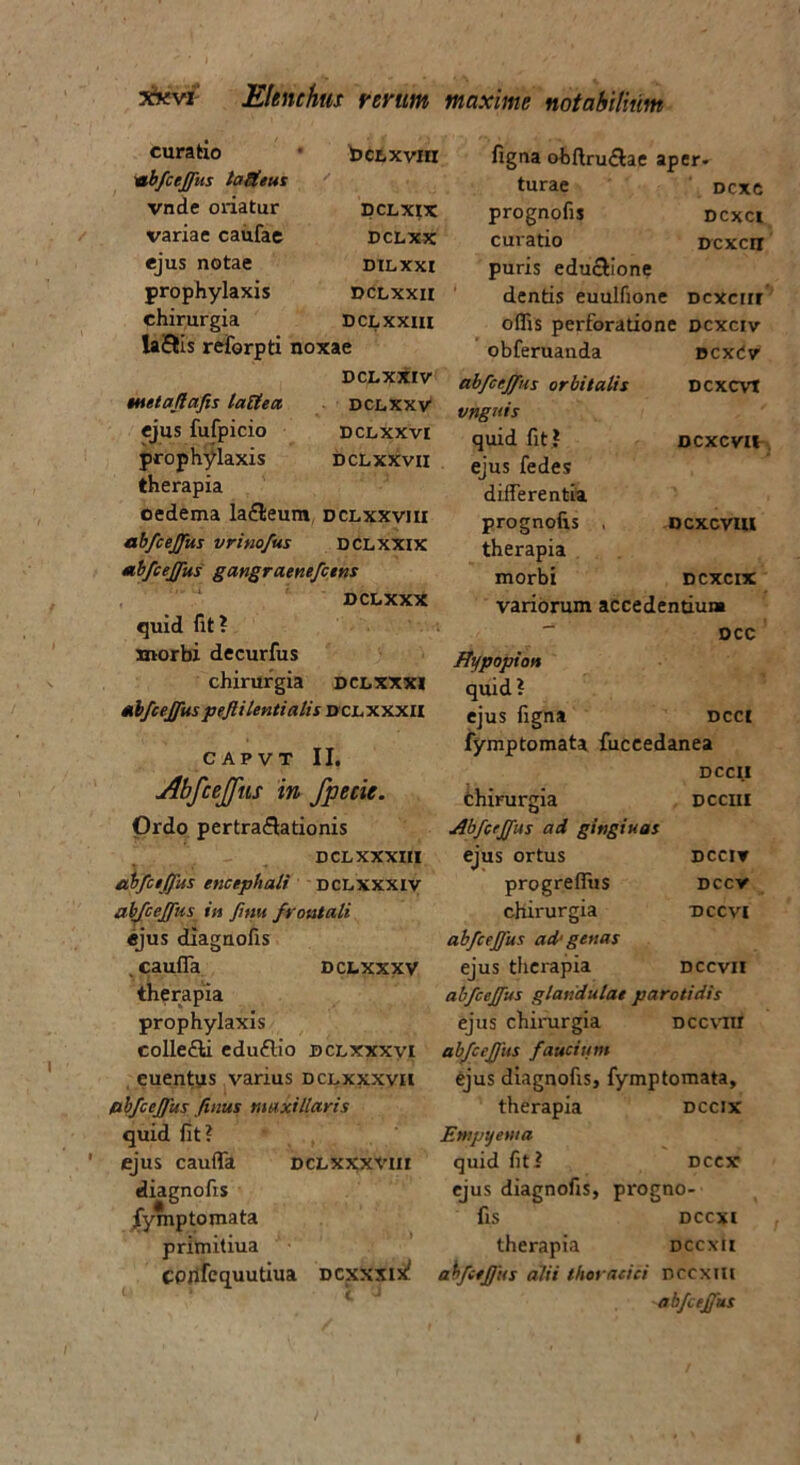 xxvi Elenchus rerum maxime notabilium
curatio DCLXVIII
abſceſſus lacteus
vnde oriatur DCLXIX
variae cauſae DCLXX
ejus notae DILXXI
prophylaxis DCLXXII
chirurgia DCLXXIII
lactis reſorpti noxae
DCLXXIV
metaſtaſis lactea DCLXXV
ejus ſuſpicio DCLXXVI
prophylaxis DCLXXVII
therapia
oedema lacteum DCLXXVIII
abſceſſus vrinoſus DCLXXIX
abſceſſus gangraeneſcens
DCLXXX
quid ſit?
morbi decurſus
chirurgia DCLXXXI
abſceſſus peſtilentialis DCLXXXII
CAPVT II.
Abſceſſus in ſpecie.
Ordo pertractationis
DCLXXXIII
abſceſſus encephali DCLXXXIV
abſceſſus in ſinu frontali
ejus diagnoſis
cauſſa DCLXXXV
therapia
prophylaxis
collecti eductio DCLXXXVI
euentus varius DCLXXXVII
abſceſſus ſinus maxillaris
quid ſit?
ejus cauſſa DCLXXXVIII
diagnoſis
ſymptomata
primitiua
conſequutiua DCXXXIX
ſigna obſtructae aper-
turae DCXC
prognoſis DCXCI
curatio DCXCII
puris eductione
dentis euulſione DCXCIII
oſſis perforatione DCXCIV
obſeruanda DCXCV
abſceſſus orbitalis DCXCVI
vnguis
quid ſit? DCXCVII
ejus ſedes
differentia
prognoſis . DCXCVIII
therapia
morbi DCXCIX
variorum accedentium
DCC
Hypopion
quid?
ejus ſigna DCCI
ſymptomata ſuccedanea
DCCII
chirurgia DCCIII
Abſceſſus ad gingiuas
ejus ortus DCCIV
progreſſus DCCV
chirurgia DCCVI
abſceſſus ad genas
ejus therapia DCCVII
abſceſſus glandulae parotidis
ejus chirurgia DCCVIII
abſceſſus faucium
ejus diagnoſis, ſymptomata,
therapia DCCIX
Empyema
quid ſit? DCCX
ejus diagnoſis, progno-
ſis DCCXI
therapia DCCXII
abſceſſus alii thoracici DCCXIII
abſceſſus